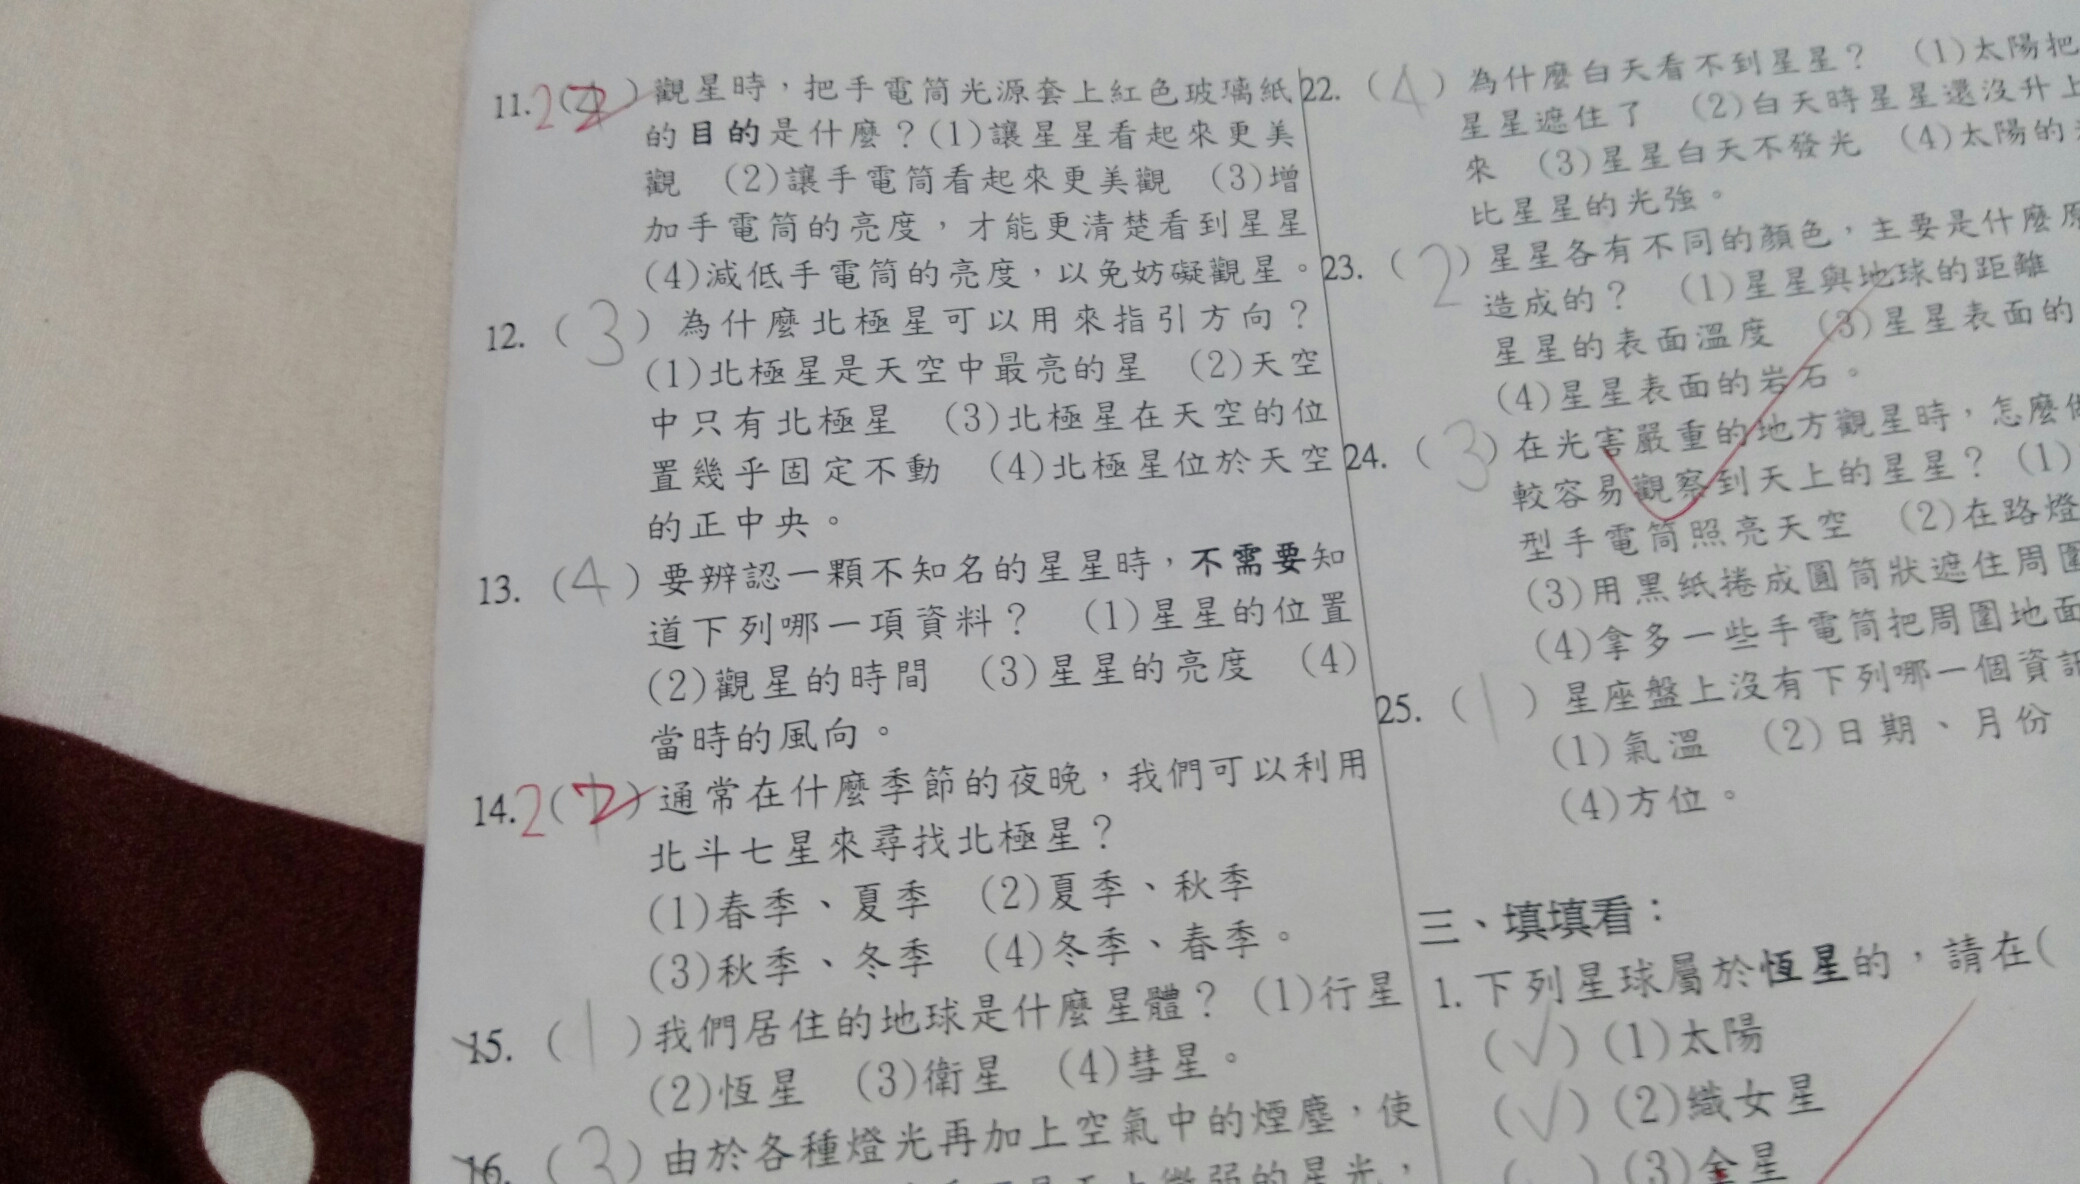 11. 2( ) 觀星時，把手電筒光源套上紅色玻璃紙
的目的是什麼？(1)讓星星看起來更美
觀 (2)讓手電筒看起來更美觀 (3)增
加手電筒的亮度，才能更清楚看到星星
(4)減低手電筒的亮度，以免妨礙觀星。
12. (3) 為什麼北極星可以用來指引方向？
(1)北極星是天空中最亮的星 (2)天空
中只有北極星 (3)北極星在天空的位
置幾乎固定不動 (4)北極星位於天空
的正中央。
13. (4) 要辨認一顆不知名的星星時，不需要知
道下列哪一項資料？ (1)星星的位置
(2)觀星的時間 (3)星星的亮度 (4)
當時的風向。
14. 2(2) 通常在什麼季節的夜晚，我們可以利用
北斗七星來尋找北極星？
(1)春季、夏季 (2)夏季、秋季
(3)秋季、冬季 (4)冬季、春季。
15. (1) 我們居住的地球是什麼星體？ (1)行星
(2)恆星 (3)衛星 (4)彗星。
16. (3) 由於各種燈光再加上空氣中的煙塵，使
微弱的星光，
22. (4) 為什麼白天看不到星星？ (1)太陽把
星星遮住了 (2)白天時星星還沒升上
來 (3)星星白天不發光 (4)太陽的
比星星的光強。
23. (2) 星星各有不同的顏色，主要是什麼原
造成的？ (1)星星與地球的距離
星星的表面溫度 (3)星星表面的
(4)星星表面的岩石。
24. (3) 在光害嚴重的地方觀星時，怎麼
較容易觀察到天上的星星？ (1)
型手電筒照亮天空 (2)在路燈
(3)用黑紙捲成圓筒狀遮住周圍
(4)拿多一些手電筒把周圍地面
25. (1) 星座盤上沒有下列哪一個資訊
(1)氣溫 (2)日期、月份
(4)方位。
三、填填看：
1. 下列星球屬於恆星的，請在(
(✓) (1)太陽
(✓) (2)織女星
( ) (3)金星